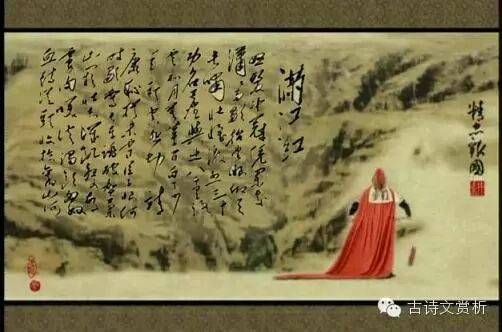 精忠报国
满江红
怒发冲冠凭阑处
潇潇雨歇抬望眼仰天
长啸壮怀激烈三十
功名尘与土八千里路
云和月莫等闲白了少
年头空悲切 靖
康耻犹未雪臣子恨何
时灭驾长车踏破贺兰
山缺壮志饥餐胡虏
肉笑谈渴饮匈奴
血待从头收拾旧山河
古诗文赏析